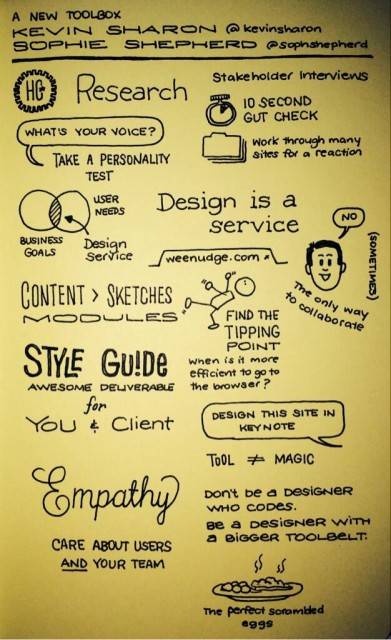 A NEW TOOLBOX
KEVIN SHARON @kevinsharon
SOPHIE SHEPHERD @sophshepherd
HG
Research
Stakeholder Interviews
10 SECOND
GUT CHECK
WHAT'S YOUR VOICE?
TAKE A PERSONALITY
TEST
Work through many
sites for a reaction
USER
NEEDS
BUSINESS
GOALS
Design
Service
Design is a
service
weenudge.com
NO
(SOMETIMES)
The only way
to collaborate
CONTENT > SKETCHES
MODULES
FIND THE
TIPPING
POINT
when is it more
efficient to go to
the browser?
STYLE GUIDE
AWESOME DELIVERABLE
for
YOU & Client
DESIGN THIS SITE IN
KEYNOTE
TOOL ≠ MAGIC
Empathy
CARE ABOUT USERS
AND YOUR TEAM
Don't be a DESIGNER
WHO CODES.
Be a DESIGNER WITH
a BIGGER TOOLBELT.
The perfect scrambled
eggs